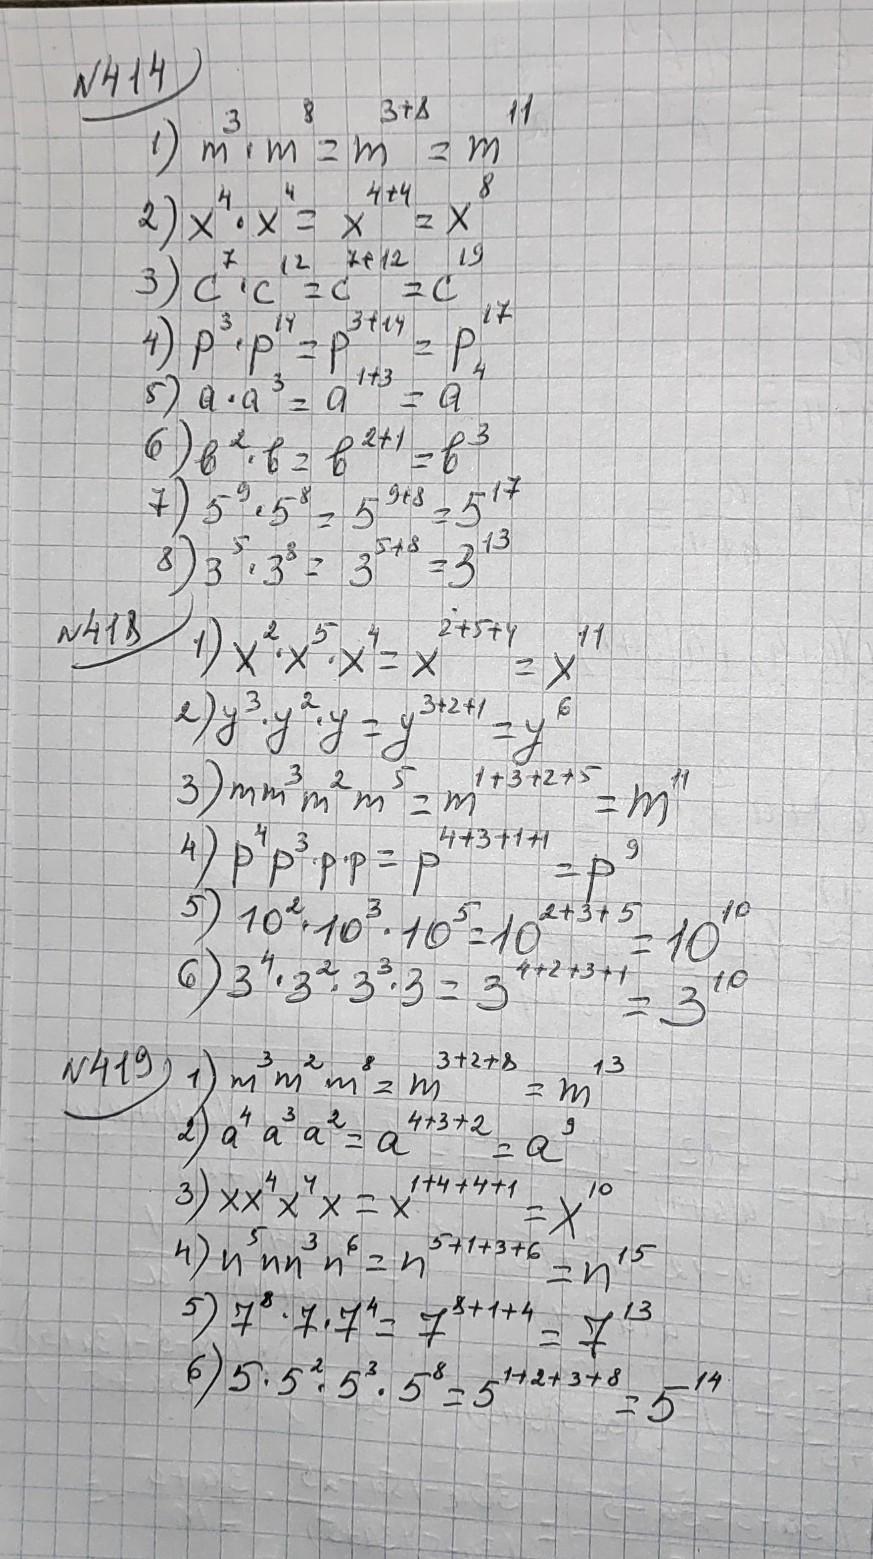 N414
1) m³·m⁸ = m³⁺⁸ = m¹¹
2) x⁴·x⁴ = x⁴⁺⁴ = x⁸
3) c⁷·c¹² = c⁷⁺¹² = c¹⁹
4) p³·p¹⁴ = p³⁺¹⁴ = p¹⁷
5) a·a³ = a¹⁺³ = a⁴
6) b²·b = b²⁺¹ = b³
7) 5⁹·5⁸ = 5⁹⁺⁸ = 5¹⁷
8) 3⁵·3⁸ = 3⁵⁺⁸ = 3¹³
N418 1) x²·x⁵·x⁴ = x²⁺⁵⁺⁴ = x¹¹
2) y³·y²·y = y³⁺²⁺¹ = y⁶
3) mm³m²m⁵ = m¹⁺³⁺²⁺⁵ = m¹¹
4) p⁴p³·p·p = p⁴⁺³⁺¹⁺¹ = p⁹
5) 10²·10³·10⁵ = 10²⁺³⁺⁵ = 10¹⁰
6) 3⁴·3²·3³·3 = 3⁴⁺²⁺³⁺¹ = 3¹⁰
N419 1) m³m²m⁸ = m³⁺²⁺⁸ = m¹³
2) a⁴a³a² = a⁴⁺³⁺² = a⁹
3) xx⁴x⁴x = x¹⁺⁴⁺⁴⁺¹ = x¹⁰
4) n⁵nn³n⁶ = n⁵⁺¹⁺³⁺⁶ = n¹⁵
5) 7⁸·7·7⁴ = 7⁸⁺¹⁺⁴ = 7¹³
6) 5·5²·5³·5⁸ = 5¹⁺²⁺³⁺⁸ = 5¹⁴